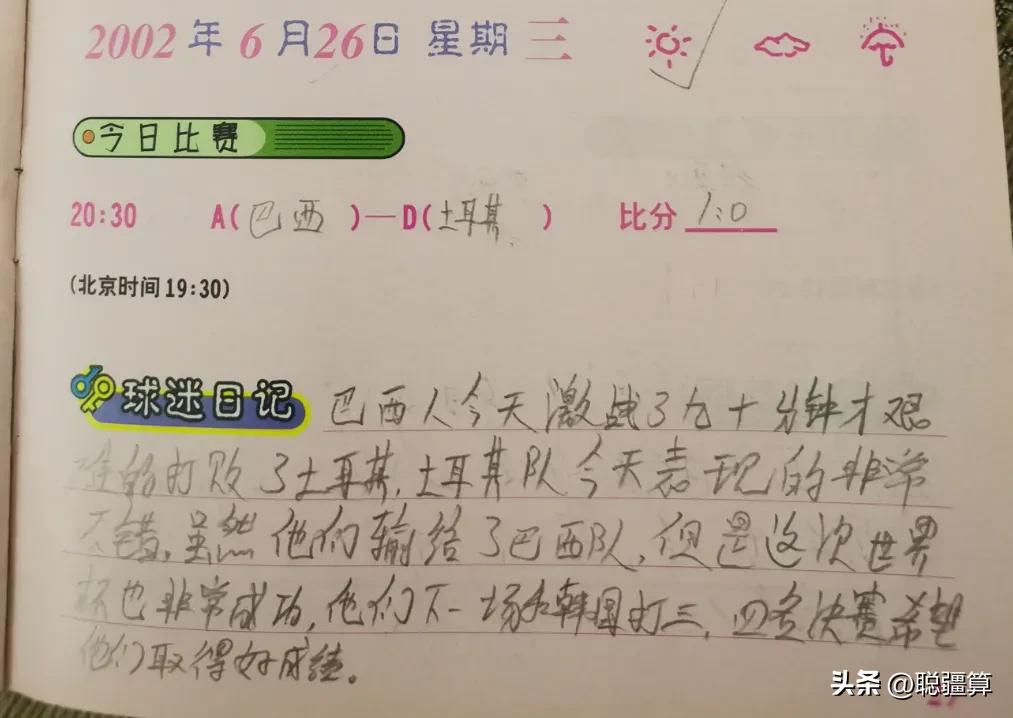 2002年6月26日 星期三
今日比赛
20:30 A(巴西)—D(土耳其) 比分 1:0
(北京时间19:30)
球迷日记 巴西人今天激战了九十分钟才艰
难的打败了土耳其,土耳其队今天表现的非常
不错,虽然他们输给了巴西队,但是这次世界
杯也非常成功,他们下一场和韩国打三,四名决赛希望
他们取得好成绩。
头条 @聪疆算
27